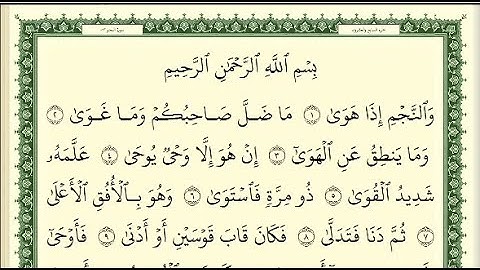 بِسْمِ ٱللَّهِ ٱلرَّحْمَٰنِ ٱلرَّحِيمِ
وَٱلنَّجْمِ إِذَا هَوَىٰ ١ مَا ضَلَّ صَاحِبُكُمْ وَمَا غَوَىٰ ٢
وَمَا يَنطِقُ عَنِ ٱلْهَوَىٰٓ ٣ إِنْ هُوَ إِلَّا وَحْىٌ يُوحَىٰ ٤ عَلَّمَهُۥ
شَدِيدُ ٱلْقُوَىٰ ٥ ذُو مِرَّةٍ فَٱسْتَوَىٰ ٦ وَهُوَ بِٱلْأُفُقِ ٱلْأَعْلَىٰ
٧ ثُمَّ دَنَا فَتَدَلَّىٰ ٨ فَكَانَ قَابَ قَوْسَيْنِ أَوْ أَدْنَىٰ ٩ فَأَوْحَىٰٓ